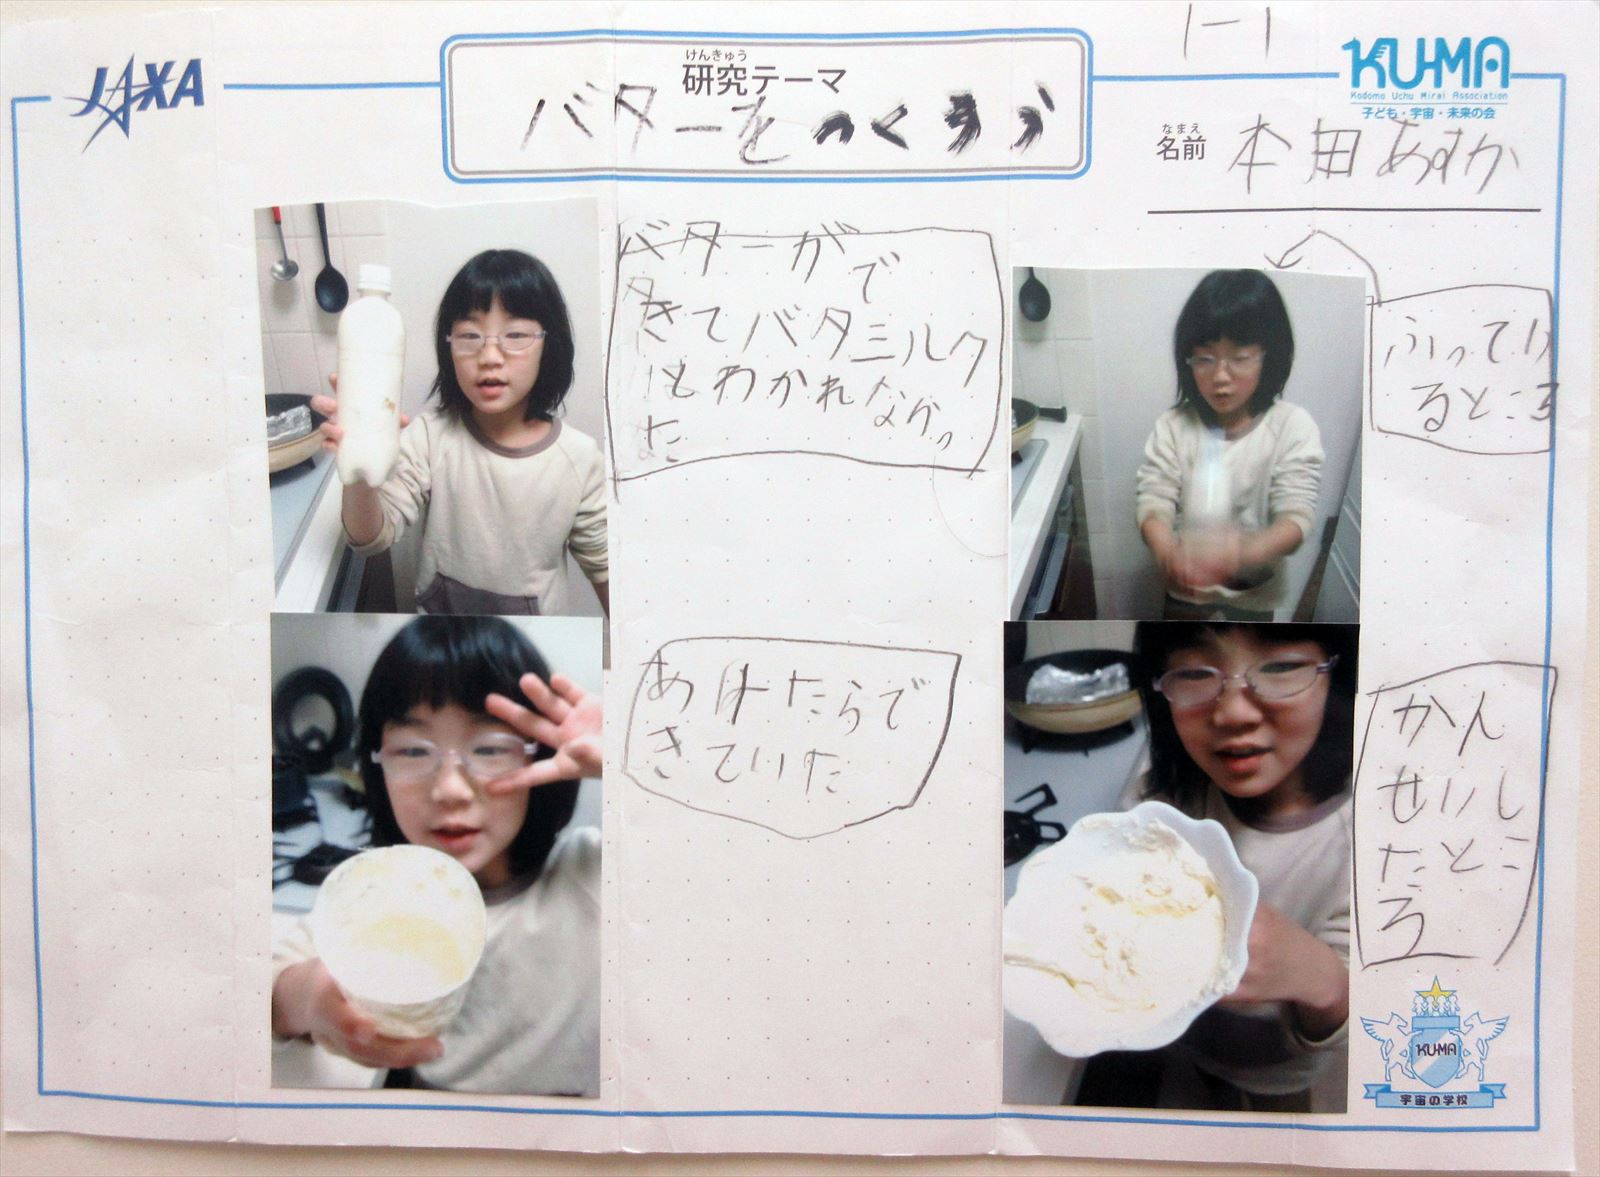 1-1
JAXA
けんきゅう
研究テーマ
バターをつくろう
KU-MA
Kodomo Uchu Mirai Association
子ども・宇宙・未来の会
なまえ
名前 本田あすか
バターがで
きてバタミルク
とわかれなかっ
た
ふってい
るところ
あけたらで
きていた
かん
せいし
たとこ
ろ
KU-MA
宇宙の学校